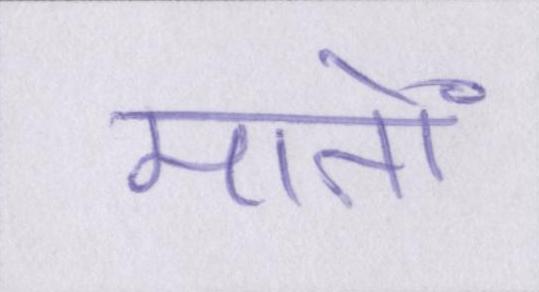 मातों